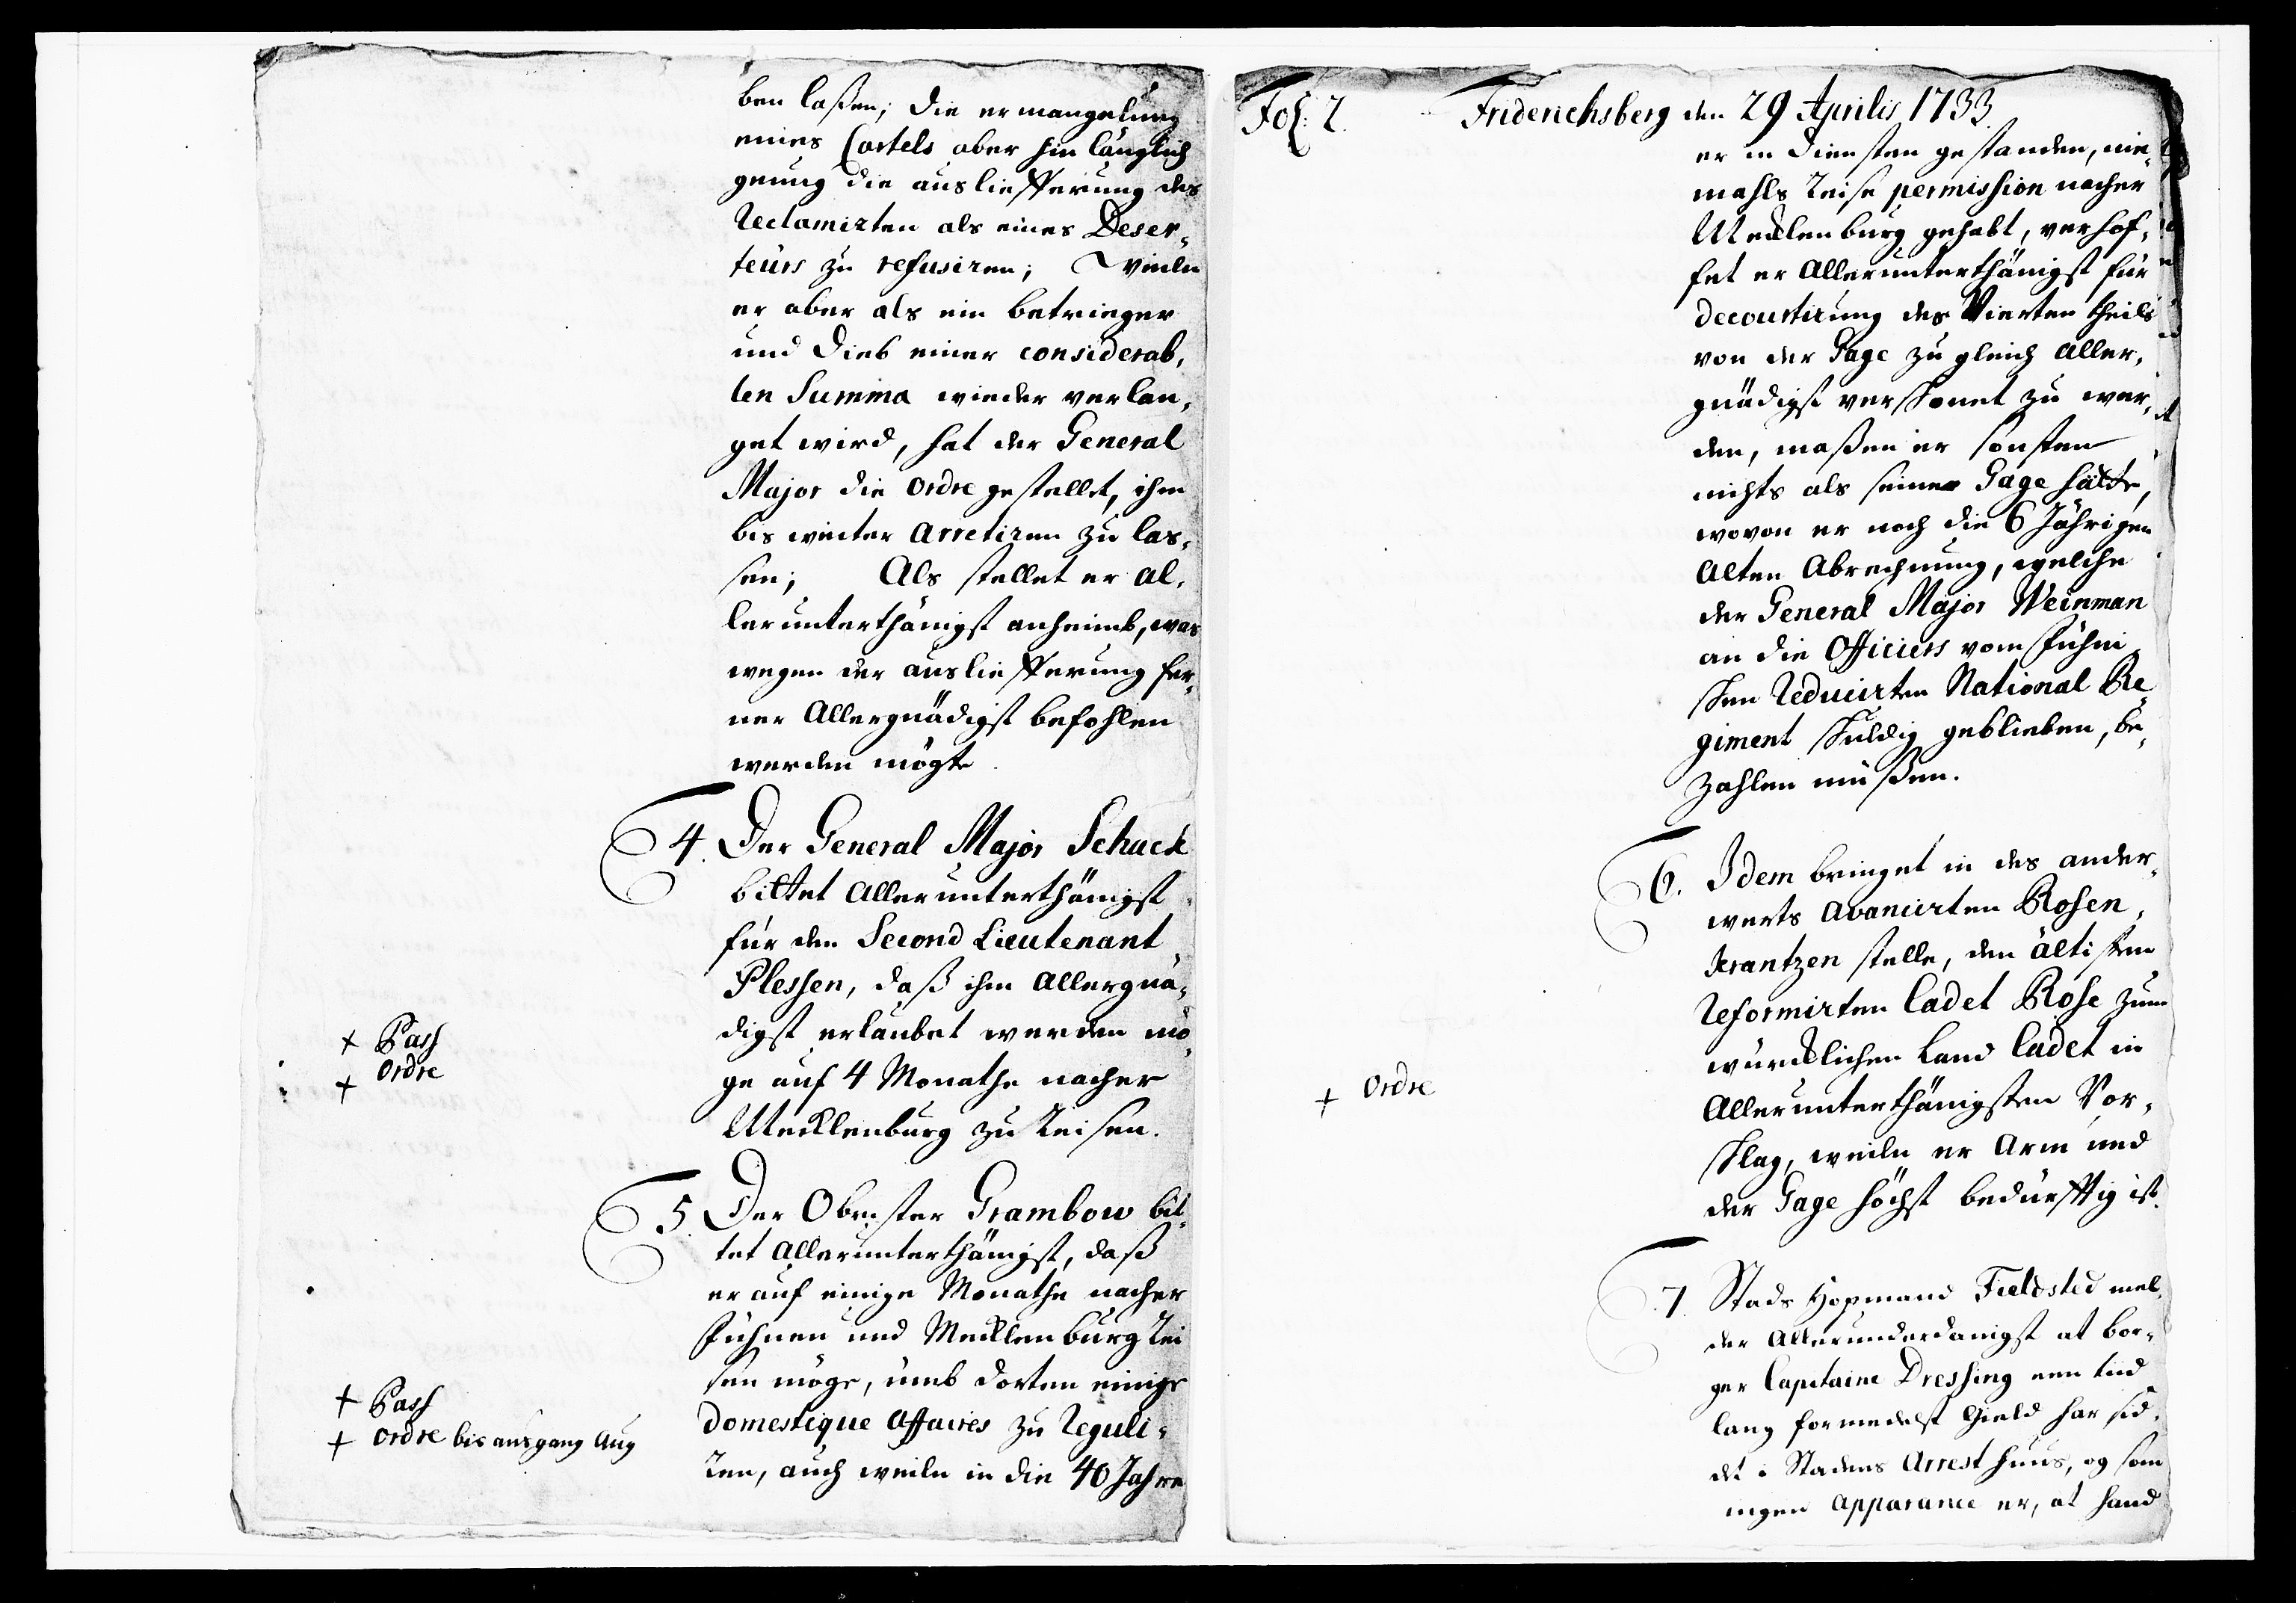 ben laßen; die ermangelung
eines Cartels aber hinlänglich
genung die auslieffferung des
Reclamirten als eines Deser-
teurs zu refusiren; Weiln
er aber als ein betrieger
und dieb einer considerab-
len Summa wieder verlan-
get wird, hat der General
Major die Ordre gestellet, ihn
bis weiter Arretiren zu las-
sen; Als stellet er al-
lerunterthänigst anheimb, was
wegen der auslieffferung fer-
ner Allergnädigst befohlen
werden mögte.
4. Der General Major Schack
bittet Allerunterthänigst
für den Second Lieutenant
Plessen, daß ihm Allergnä-
digst erlaubet werden mö-
ge auf 4 Monathe nacher
Mecklenburg zu Reisen.
+ Pass
+ Ordre
5. Der Obrister Grambow bit-
tet Allerunterthänigst, daß
er auf einige Monathe nacher
Fühnen und Mecklenburg Rei
sen möge, umb dorten einige
domestique Affaires zu Reguli-
ren, auch weiln in die 40 Jahre
+ Pass
+ Ordre bis ausgang Aug
Fol: 2. Friderichsberg den 29 Aprilis 1733
er in diensten gestanden, nie-
mahls Reise permission nacher
Mecklenburg gehabt, verhof-
fet er Allerunterthänigst für
decourtirung des Vierten theils
von der Gage zugleich Aller-
gnädigst verschonet zu wer-
den, maßen er sonsten
nichts als seine Gage hätte,
wovon er noch die 6 Jährigen
Alten Abrechnung, welche
der General Major Weinman
an die Officiers vom Fühni
schen Reducirten National Re-
giment schuldig geblieben, be-
zahlen müßen.
6. Idem bringet in des ander-
werts avancirten Rosen-
krantzen stelle, den ältisten
Reformirten Cadet Rose zum
würcklichen Land Cadet in
Allerunterthänigsten Vor-
schlag, weiln er Arm und
der Gage höchst bedürfftig ist.
+ Ordre
7. Stads Hopmand Fieldsted mel-
der Allerunderdanigst at bor-
ger Capitaine Dressing een tiid
lang formedelst Gield har sid-
det i Stadens Arresthuus, og som
ingen apparance er, at hand